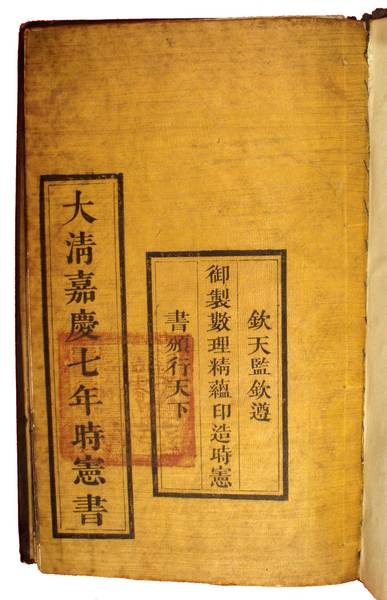 欽天監欽遵
御製數理精蘊印造時憲
書頒行天下
大清嘉慶七年時憲書